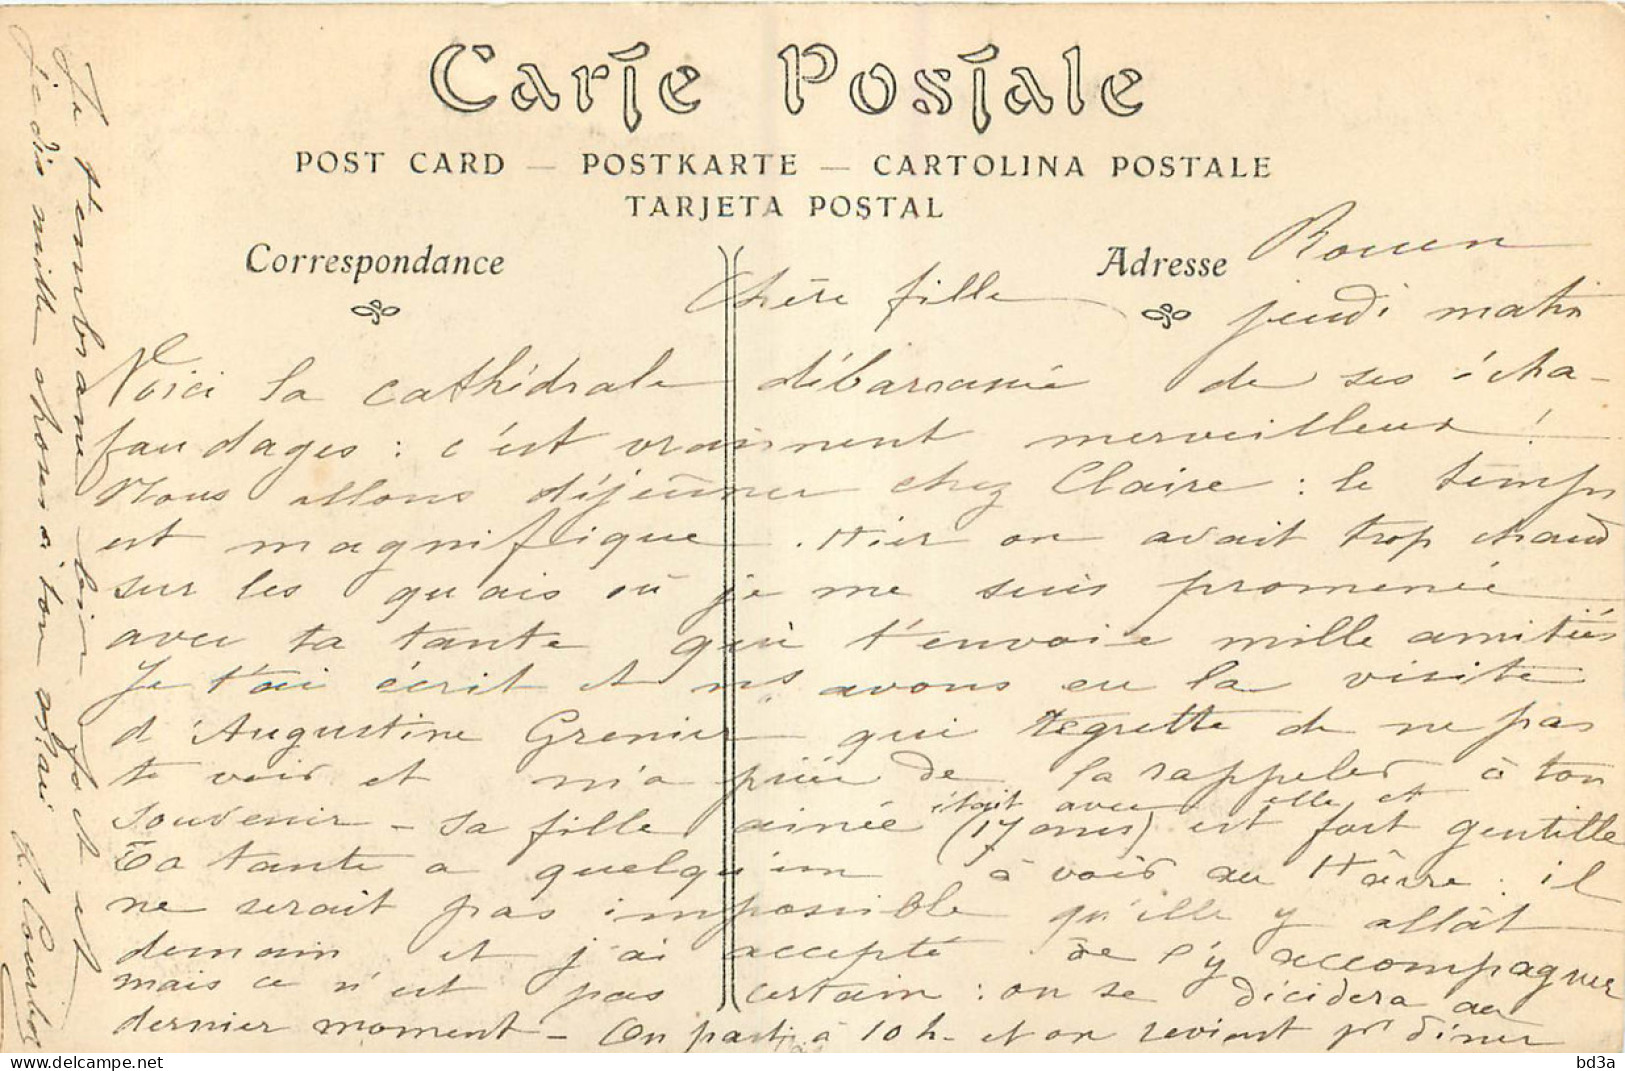 Carte Postale
POST CARD — POSTKARTE — CARTOLINA POSTALE
TARJETA POSTAL
Correspondance
Adresse
Rouen
jeudi matin
Chère fille
Voici la cathédrale débarassée de ses écha-
faudages : c'est vraiment merveilleux !
Nous allons déjeûner chez Claire : le temps
est magnifique . Hier on avait trop chaud
sur les quais où je me suis promenée
avec ta tante qui t'envoie mille amitiés
Je t'ai écrit et ns avons eu la visite
d'Augustine Grenier qui regrette de ne pas
te voir et m'a priée de la rappeler à ton
souvenir – sa fille aînée (17 ans) était avec elle et est fort gentille
Ta tante a quelqu'un à voir au Hâvre : il
ne serait pas impossible qu'elle y allât
demain et j'ai accepté de l'y accompagner
mais ce n'est pas certain : on se décidera au
dernier moment – On part à 10 h. et on revient pr dîner
Je t'embrasse bien fort et
je dis mille choses à ton mari
bd3a